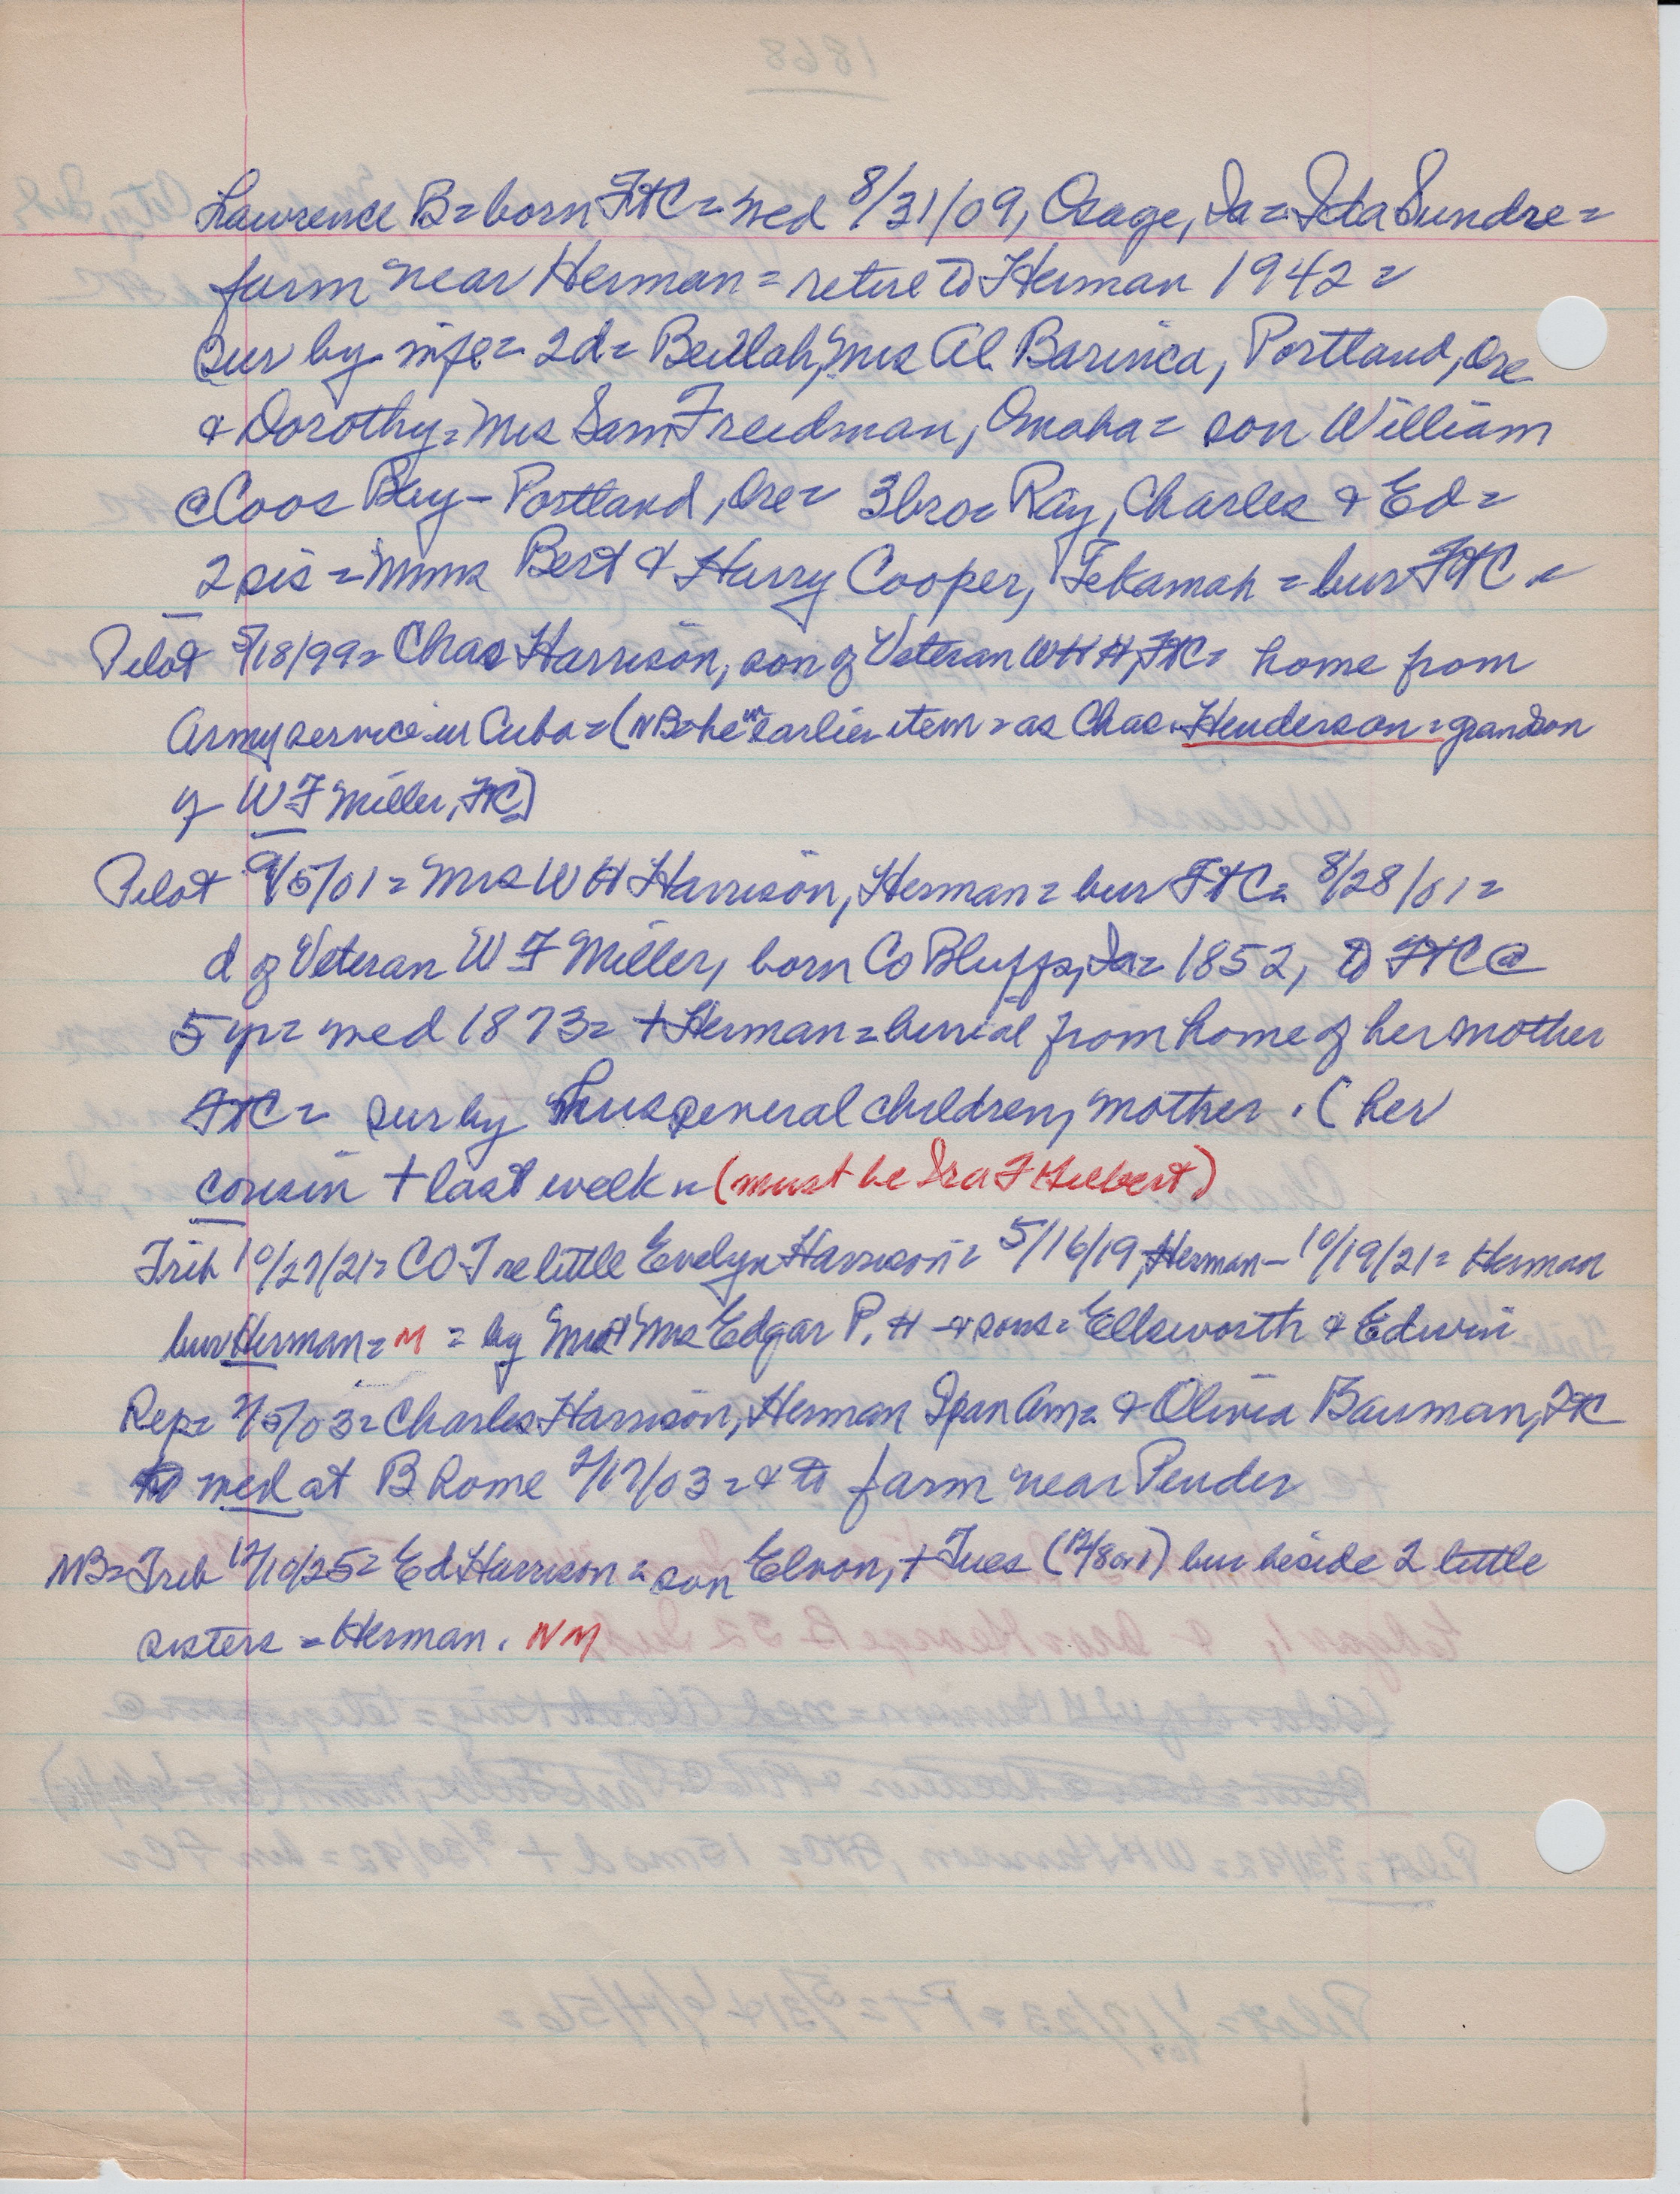 Lawrence B = born FtC = med 8/31/09, Osage, Ia = Ida Sundre =
farm near Herman = retire to Herman 1942 =
Sur by wife = 2d = Beulah, Mrs Al Barinca, Portland, Ore
& Dorothy = Mrs Sam Freidman, Omaha = son William
@ Coos Bay - Portland, Ore = 3 bro = Ray, Charles & Ed =
2 sis = Mmes Bert & Harry Cooper, Tekamah = bur FtC =
Pilot 5/18/99 = Chas Harrison, son of Veteran WHH, FtC = home from
Army service in Cuba = (NB = he in earlier item = as Chas. Henderson = grandson
of WF Miller, FtC)
Pilot 9/5/01 = Mrs WH Harrison, Herman = bur FtC = 8/28/01 =
d of Veteran WF Miller, born Co Bluffs, Ia = 1852, to FtC @
5 yr = med 1873 = + Herman = burial from home of her mother
FtC = sur by hus several children, mother. (her
cousin + last week = (must be Ira F Hilbert)
Trib 10/27/21 = COT re little Evelyn Harrison = 5/16/19, Herman - 10/19/21 = Herman
bur Herman = M = by Mr & Mrs Edgar P. H - & sons = Ellsworth & Edwin
Rep = 2/5/03 = Charles Harrison, Herman Span Am = & Olivia Bauman, FtC
to med at B home 2/17/03 = & to farm near Pender
NB = Trib 12/10/25 = Ed Harrison = son Elvon, + Tues (12/8 or 1) bur beside 2 little
sisters = Herman. NM